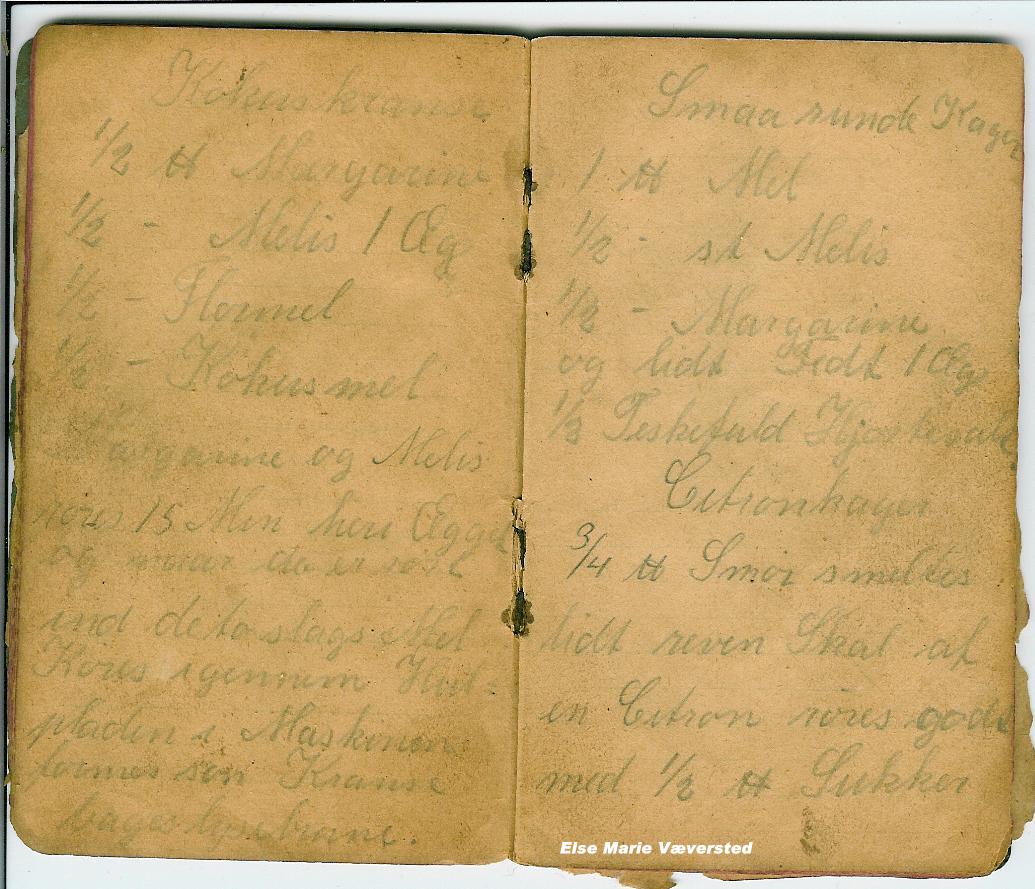 Kokuskranse
1/2 ℔ Margarine
1/2 - Melis 1 Æg
1/2 - Flormel
1/2 - Kokusmel
Margarine og Melis
röres 15 Min heri Ægget
og naar de er rört
ind de to slags Mel
Köres igennem Hul-
pladen i Maskinen
formes som Kranse
bages lysebrune.
Smaa runde Kager
1 ℔ Mel
1/2 - st Melis
1/2 - Margarine
og lidt Fedt 1 Æg
1/3 Teskefuld Hjortetaks.
Citronkager
3/4 ℔ Smör smeltes
lidt reven Skal af
en Citron röres godt
med 1/2 ℔ Sukker
Else Marie Væversted